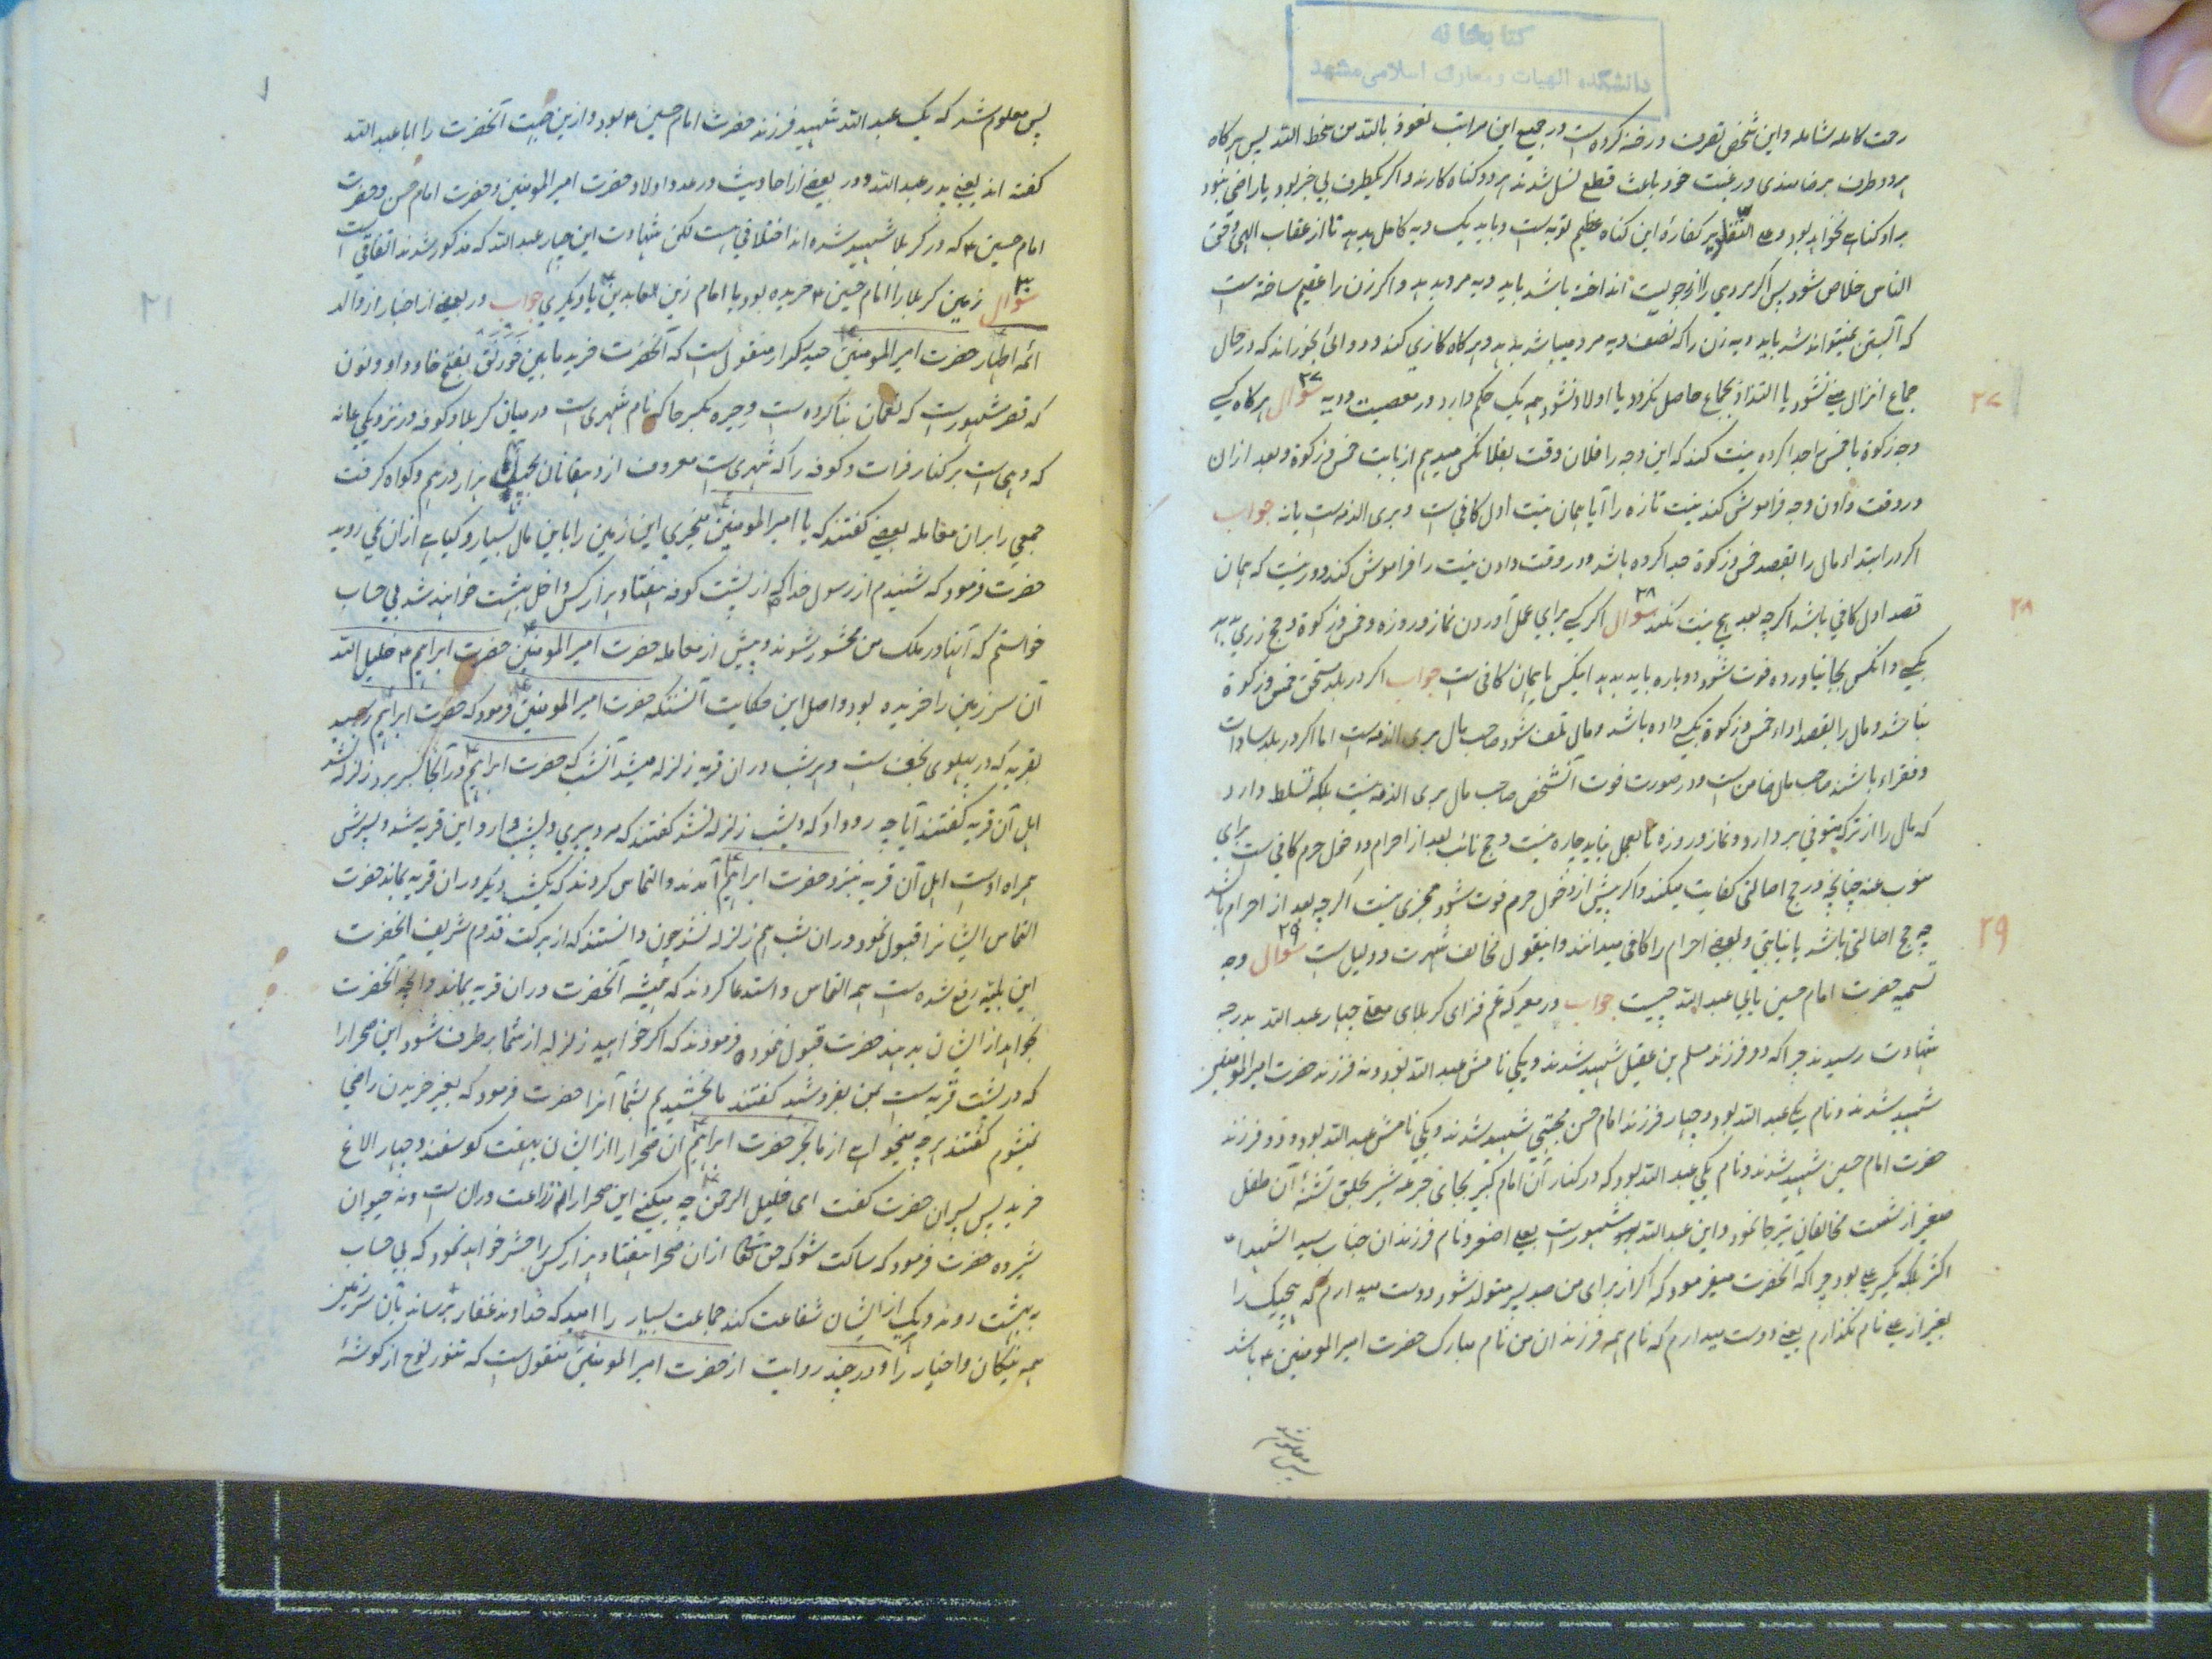 کتابخانه
دانشکده الهیات و معارف اسلامی مشهد
رحمت کامله شامله و این شخص تصرف و رخنه کرده است در جمیع این مراتب نعوذ بالله من سخط الله پس هرکاه
هر دو طرف برضامندی و رغبت خود باعث قطع نسل شدند هر دو کناه کارند و اکر یکطرف بی خبر بود یا راضی نبود
بر او کناهی نخواهد بود و علی التقدیر کفارهٔ این کناه عظیم توبه است و باید یک دیه کامل بدهد تا از عقاب الهی و حق
الناس خلاص شود پس اکر مردی را از رجولیت انداخته باشد باید دیه مرد بدهد و اکر زن را عقیم ساخته است
که آبستن نمیتواند شد باید دیه زن را که نصف دیه مرد میباشد بدهد و هرکاه کاری کند و دوائی بخوراند که در حال
جماع انزال منی نشود یا التذاذ بجماع حاصل نکردد یا اولاد نشود همه یک حکم دارد در معصیت و دیه سؤال ۲۷ هرکاه کسی
وجه زکوة یا خمس را جدا کرده نیت کند که این وجه را فلان وقت بفلانکس میدهم از بابت خمس و زکوة و بعد از ان
در وقت دادن وجه فراموش کند نیت تازه را آیا همان نیت اول کافی است و بری الذمه است یا نه جواب
اکر در ابتداء مال را بقصد خمس و زکوة جدا کرده باشد و در وقت دادن نیت را فراموش کند دور نیست که همان
قصد اول کافی باشد اکرچه بعد هیچ نیت نکند سؤال ۲۸ اکر کسی برای عمل آوردن نماز و روزه و خمس و زکوة و حج زری بدهد
بکسی و انکس بجا نیاورده فوت شود دوباره باید بدهد اینکس یا همان کافی است جواب اکر در بلد مستحق خمس و زکوة
نباشد و مال را بقصد اداء خمس و زکوة بکسی داده باشد و مال تلف شود صاحب مال بری الذمه است اما اکر در بلد سادات
و فقراء باشند صاحب مال ضامن است و در صورت فوت آنشخص صاحب مال بری الذمه نیست بلکه تسلط دارد
که مال را از ترکه متوفی بردارد و نماز و روزه تا بعمل نیاید چاره نیست و حج نائب بعد از احرام و دخول حرم کافی است برای
منوب عنه چنانچه در حج اصالتی کفایت میکند و اکر پیش از دخول حرم فوت شود مجزی نیست اکرچه بعد از احرام باشد
چه حج اصالتی باشد یا نیابتی و بعضی احرام را کافی میدانند و اینقول مخالف شهرت و دلیل است سؤال ۲۹ وجه
تسمیه حضرت امام حسین بابی عبد الله چیست جواب در معرکه غم فزای کربلای معلی چهار عبد الله بدرجه
شهادت رسیدند چرا که دو فرزند مسلم بن عقیل شهید شدند و یکی نامش عبد الله بود و نه فرزند حضرت امیر المؤمنین
شهید شدند و نام یکی عبد الله بود و چهار فرزند امام حسن مجتبی شهید شدند و یکی نامش عبد الله بود و دو فرزند
حضرت امام حسین شهید شدند و نام یکی عبد الله بود که در کنار آن امام کبیر بجای جرعه شیر بحلق تشنهٔ آن طفل
صغیر از شصت مخالفان تیر جا نمود و این عبد الله مشهور است بعلی اصغر و نام فرزندان جناب سید الشهداء
اکثر بلکه یکسر علی بود چرا که آنحضرت میفرمود که اکر از برای من صد پسر متولد شود دوست میدارم که هیچیک را
بغیر از علی نام نکذارم یعنی دوست میدارم که نام همه فرزندان من نام مبارک حضرت امیر المومنین ع باشد
پس معلوم شد
۲۷
۲۸
۲۹
پس معلوم شد که یک عبد الله شهید فرزند حضرت امام حسین ع بود و از این جهت آنحضرت را ابا عبد الله
کفته اند یعنی پدر عبد الله و در بعضی از احادیث در عدد اولاد حضرت امیر المومنین و حضرت امام حسن و حضرت
امام حسین ع که در کربلا شهید شده اند اختلافی هست لکن شهادت این چهار عبد الله که مذکور شدند اتفاقی است
سؤال ۳۰ زمین کربلا را امام حسین ع خریده بود یا امام زین العابدین ع یا دیکری جواب در بعضی از اخبار از والد
ائمه اطهار حضرت امیر المومنین حیدر کرار منقول است که آنحضرت خرید مابین خورنق بفتح خا و واو و نون
که قصر مشهور است که نعمان بنا کرده است و حیره بکسر حا که نام شهری است در میان کربلا و کوفه در نزدیکی عانه
که دهی است بر کنار فرات و کوفه را که شهری است معروف از دهقانان بچهل هزار درهم و کواه کرفت
جمعی را بر ان معامله بعضی کفتند که یا امیر المومنین میخری این زمین را باین مال بسیار و کیاهی از ان نمی روید
حضرت فرمود که شنیدم از رسول خدا که از پشت کوفه هفتاد هزار کس داخل بهشت خواهند شد بی حساب
خواستم که آنها در ملک من محشور شوند و پیش از معامله حضرت امیر المومنین حضرت ابراهیم ع خلیل الله
آن سرزمین را خریده بود و اصل این حکایت آنستکه حضرت امیر المومنین فرمود که حضرت ابراهیم رسید
بقریه که در پهلوی نجف است و هر شب در ان قریه زلزله میشد آنشب که حضرت ابراهیم در آنجا بسر برد زلزله نشد
اهل آن قریه کفتند آیا چه رو داد که دیشب زلزله نشد کفتند که مرد پیری دیشب وارد این قریه شد و پسرش
همراه او است اهل آن قریه بنزد حضرت ابراهیم آمدند و التماس کردند که یکشب دیکر در ان قریه بماند حضرت
التماس ایشانرا قبول نمود و در ان شب هم زلزله نشد چون دانستند که از برکت قدوم شریف آنحضرت
این بلیه رفع شده است همه التماس و استدعا کردند که همیشه آنحضرت در ان قریه بماند و آنچه آنحضرت
بخواهد از ایشان بدهند حضرت قبول ننموده فرمودند که اکر خواهید زلزله از شما برطرف شود این صحرا را
که در پشت قریه است بمن بفروشید کفتند ما بخشیدیم بشما آنرا حضرت فرمود که بغیر خریدن راضی
نمیشوم کفتند هرچه میخواهی از ما بخر حضرت ابراهیم ان صحرا را از ایشان بهفت کوسفند و چهار الاغ
خرید پس پسر ان حضرت کفت ای خلیل الرحمن چه میکنی این صحرا را نه زراعت در ان است و نه حیوان
شیرده حضرت فرمود که ساکت شو که حق تعالی از ان صحرا هفتاد هزار کس را حشر خواهد نمود که بی حساب
به بهشت روند و یک از ایشان شفاعت کند جماعت بسیار را امید که خداوند غفار برساند بآن سرزمین
همه نیکان و اخیار را و در چند روایت از حضرت امیر المومنین منقول است که تنور نوح از کوشهٔ
۲۱